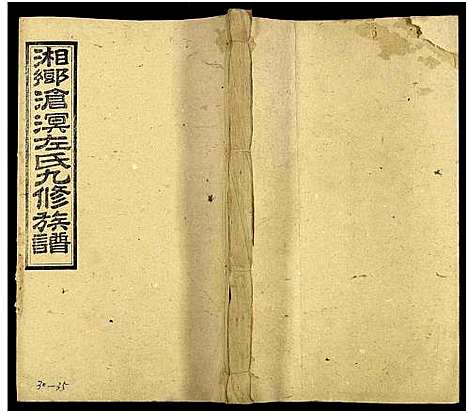 湘鄉滄溟左氏九修族譜
30-35